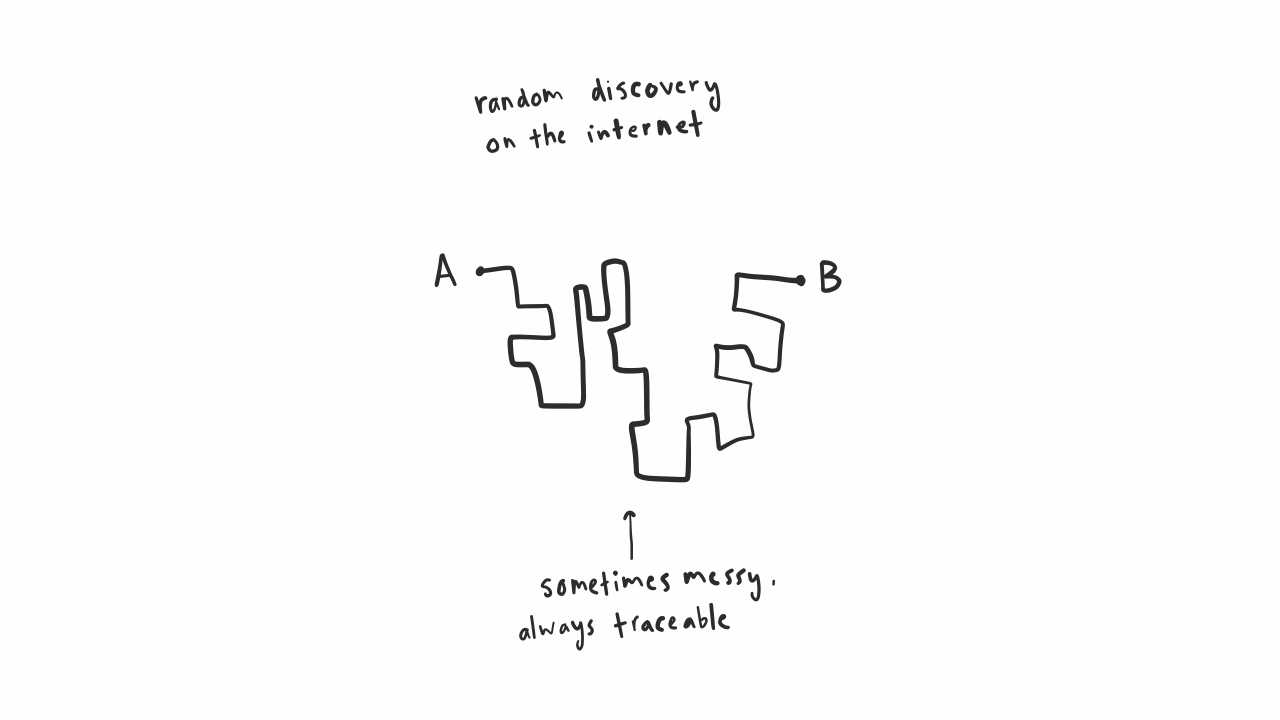 random discovery
on the internet
A
B
sometimes messy.
always traceable